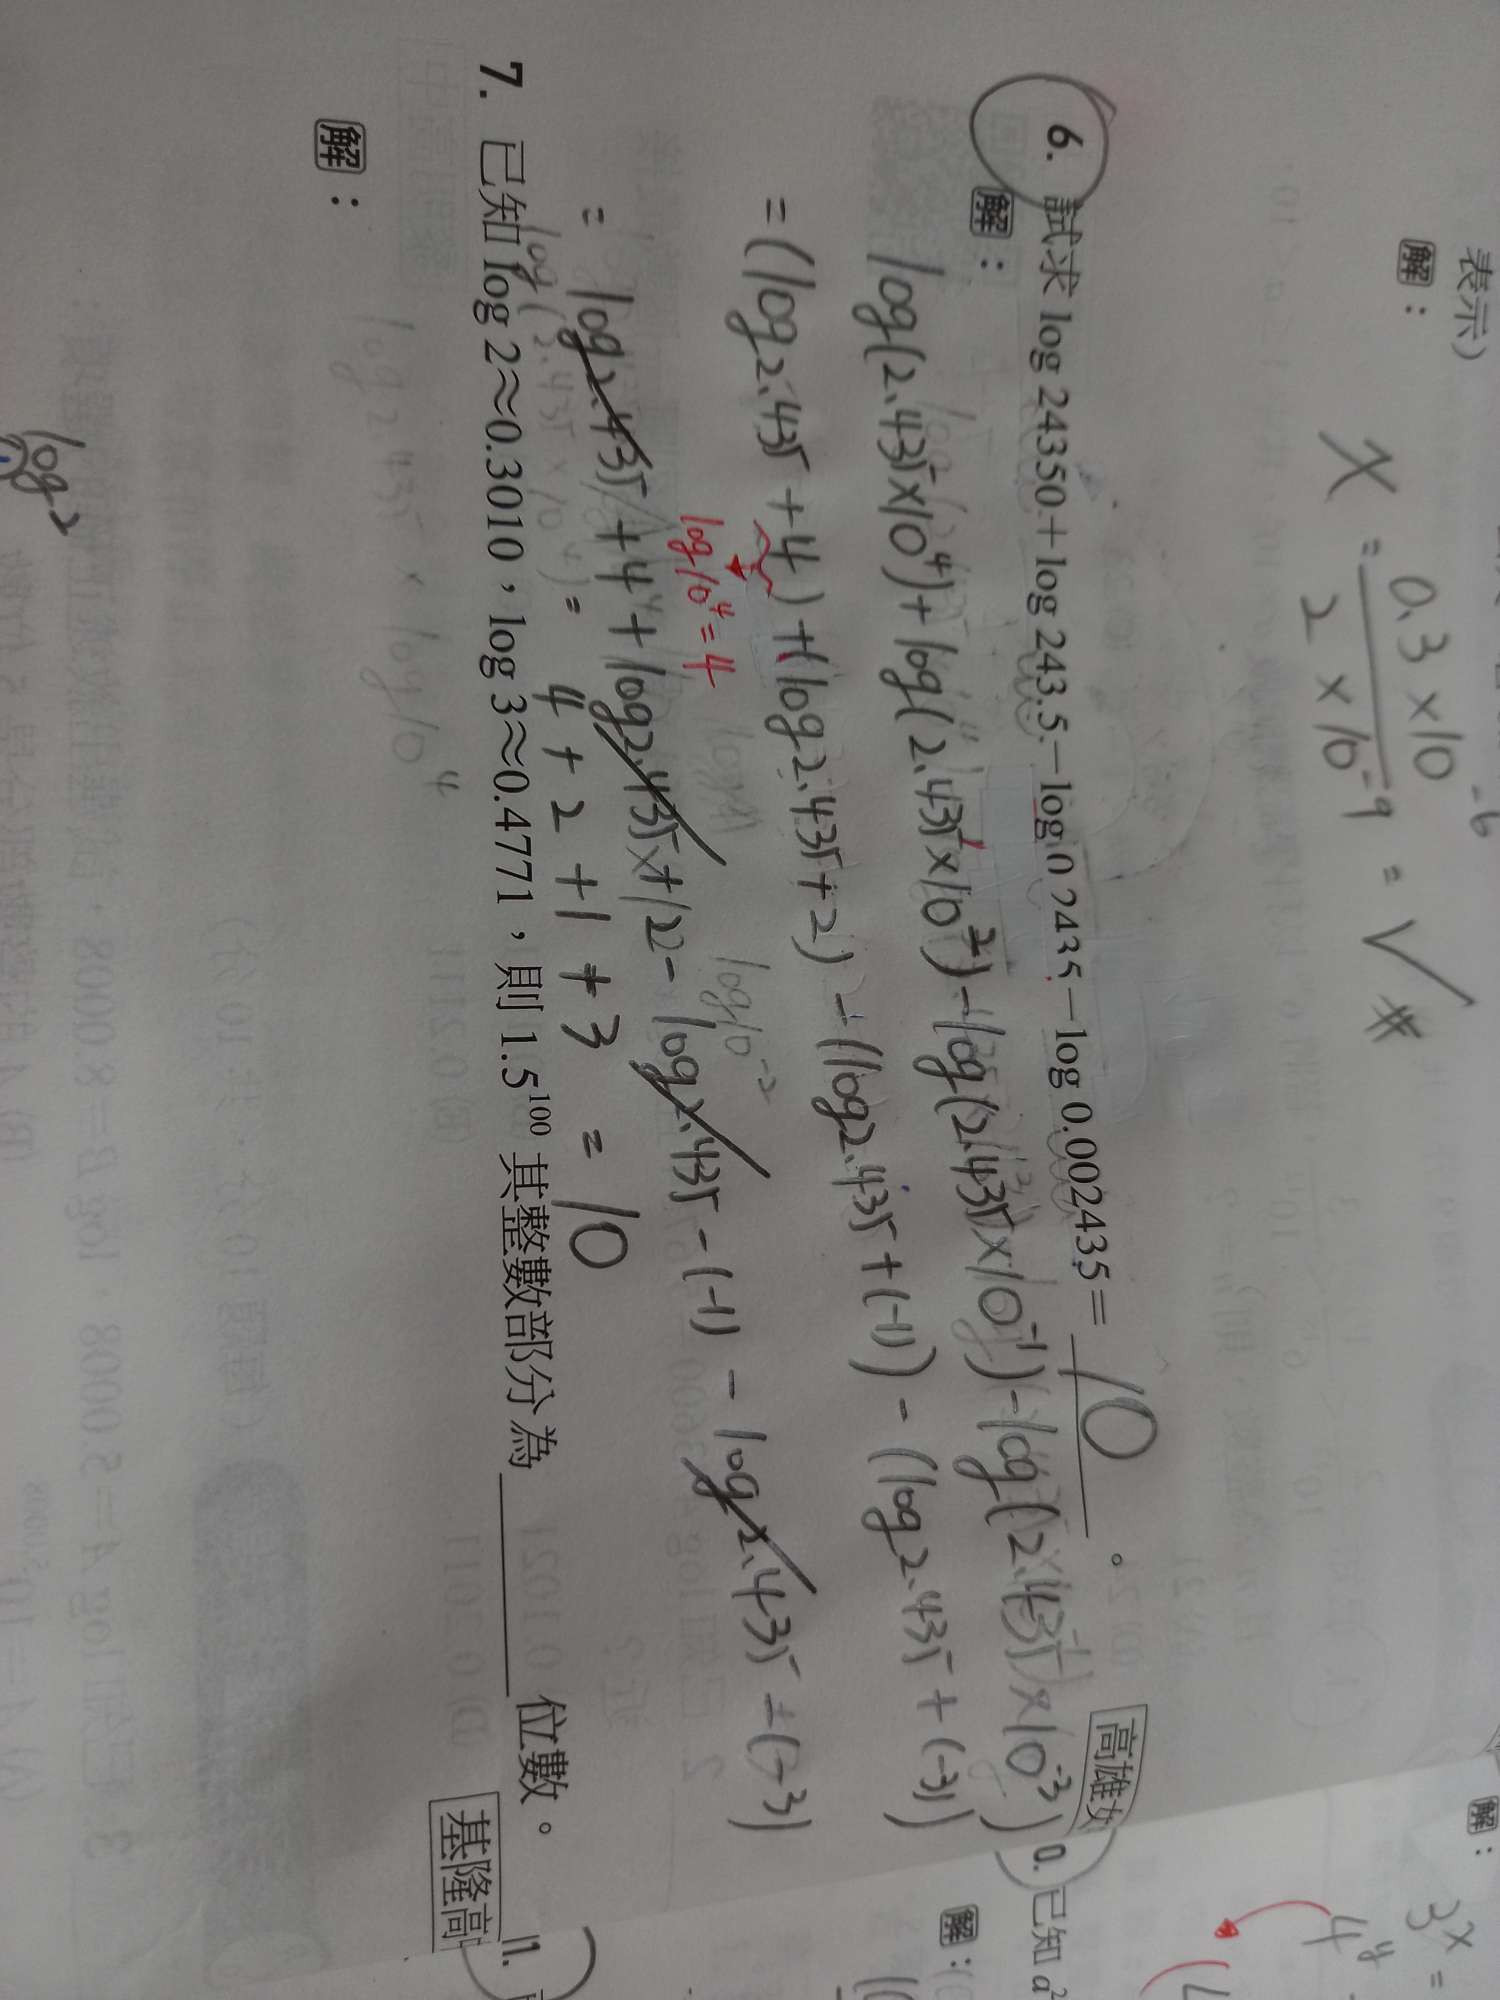 表示)
解：
x = 0.3×10⁻⁶ / 2×10⁻⁹ = ✓ #
6. 試求 log 24350＋log 243.5－log 0.2435－log 0.002435＝ 10 。
高雄女
解：
log(2.435×10⁴)+log(2.435×10²)-log(2.435×10⁻¹)-log(2.435×10⁻³)
=(log2.435+4)+(log2.435+2)-(log2.435+(-1))-(log2.435+(-3))
log10⁴=4
log10⁻²
=log2.435+4+log2.435+2-log2.435-(-1)-log2.435-(-3)
4+2+1+3=10
7. 已知 log 2≈0.3010，log 3≈0.4771，則 1.5¹⁰⁰ 其整數部分為 位數。
基隆高
log(2.435×10⁴)=
解：
log2.435×log10⁴
log2
解：
3ˣ=
4ʸ
0. 已知 a²
解：
11.